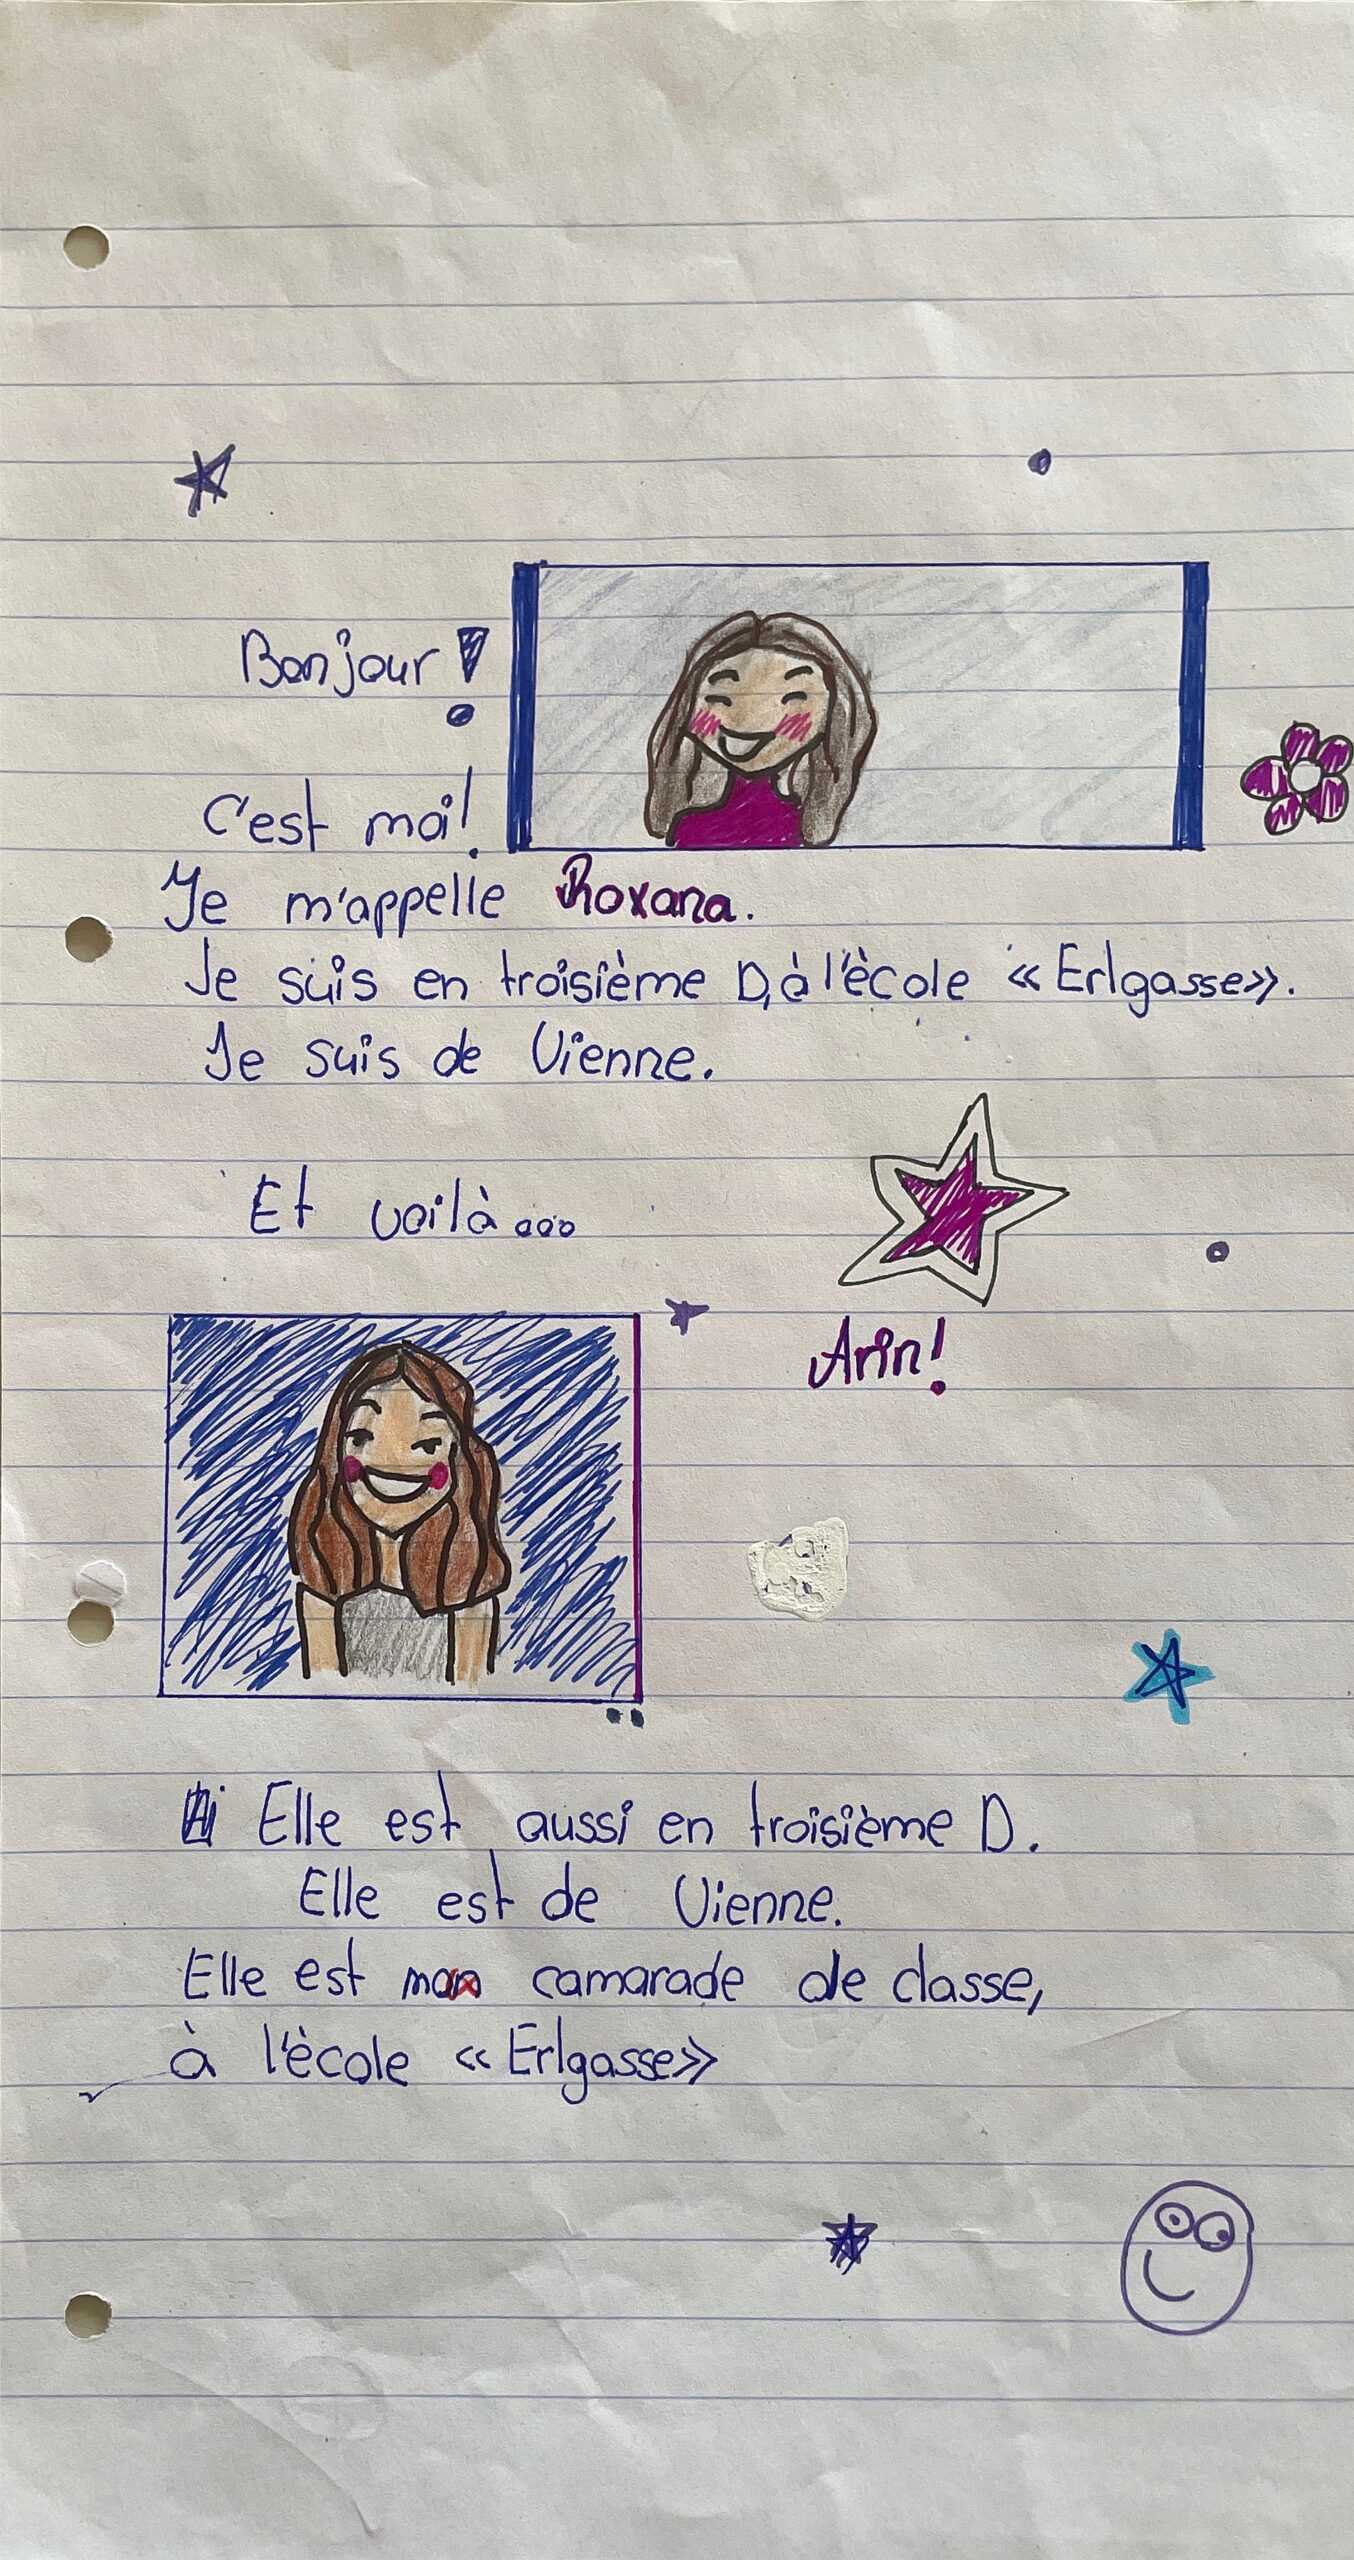 Bonjour!
C'est moi!
Je m'appelle Roxana.
Je suis en troisième D, à l'ècole «Erlgasse».
Je suis de Vienne.
Et voilà...
Arin!
Elle est aussi en troisième D.
Elle est de Vienne.
Elle est ma camarade de classe,
à l'ècole «Erlgasse»